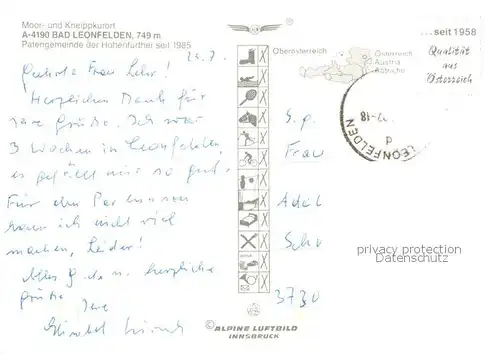 Moor- und Kneippkurort
A-4190 BAD LEONFELDEN, 749 m
Patengemeinde der Hohenfurther seit 1985
23.7.
Geehrte Frau Lehr!
Herzlichen Dank für
Ihre Grüße. Ich war
3 Wochen in Leonfelden,
es gefällt mir so gut.
Für den
kann ich nicht viel
machen, Leider!
Alles g. da u. herzliche
Grüße Ihre
Elisabeth
Oberösterreich
Österreich
Austria
Autriche
...seit 1958
Qualität
aus
Österreich
LEONFELDEN
S.p.
Frau
Adel
Schu
3730
privacy protection
Datenschutz
© ALPINE LUFTBILD
INNSBRUCK